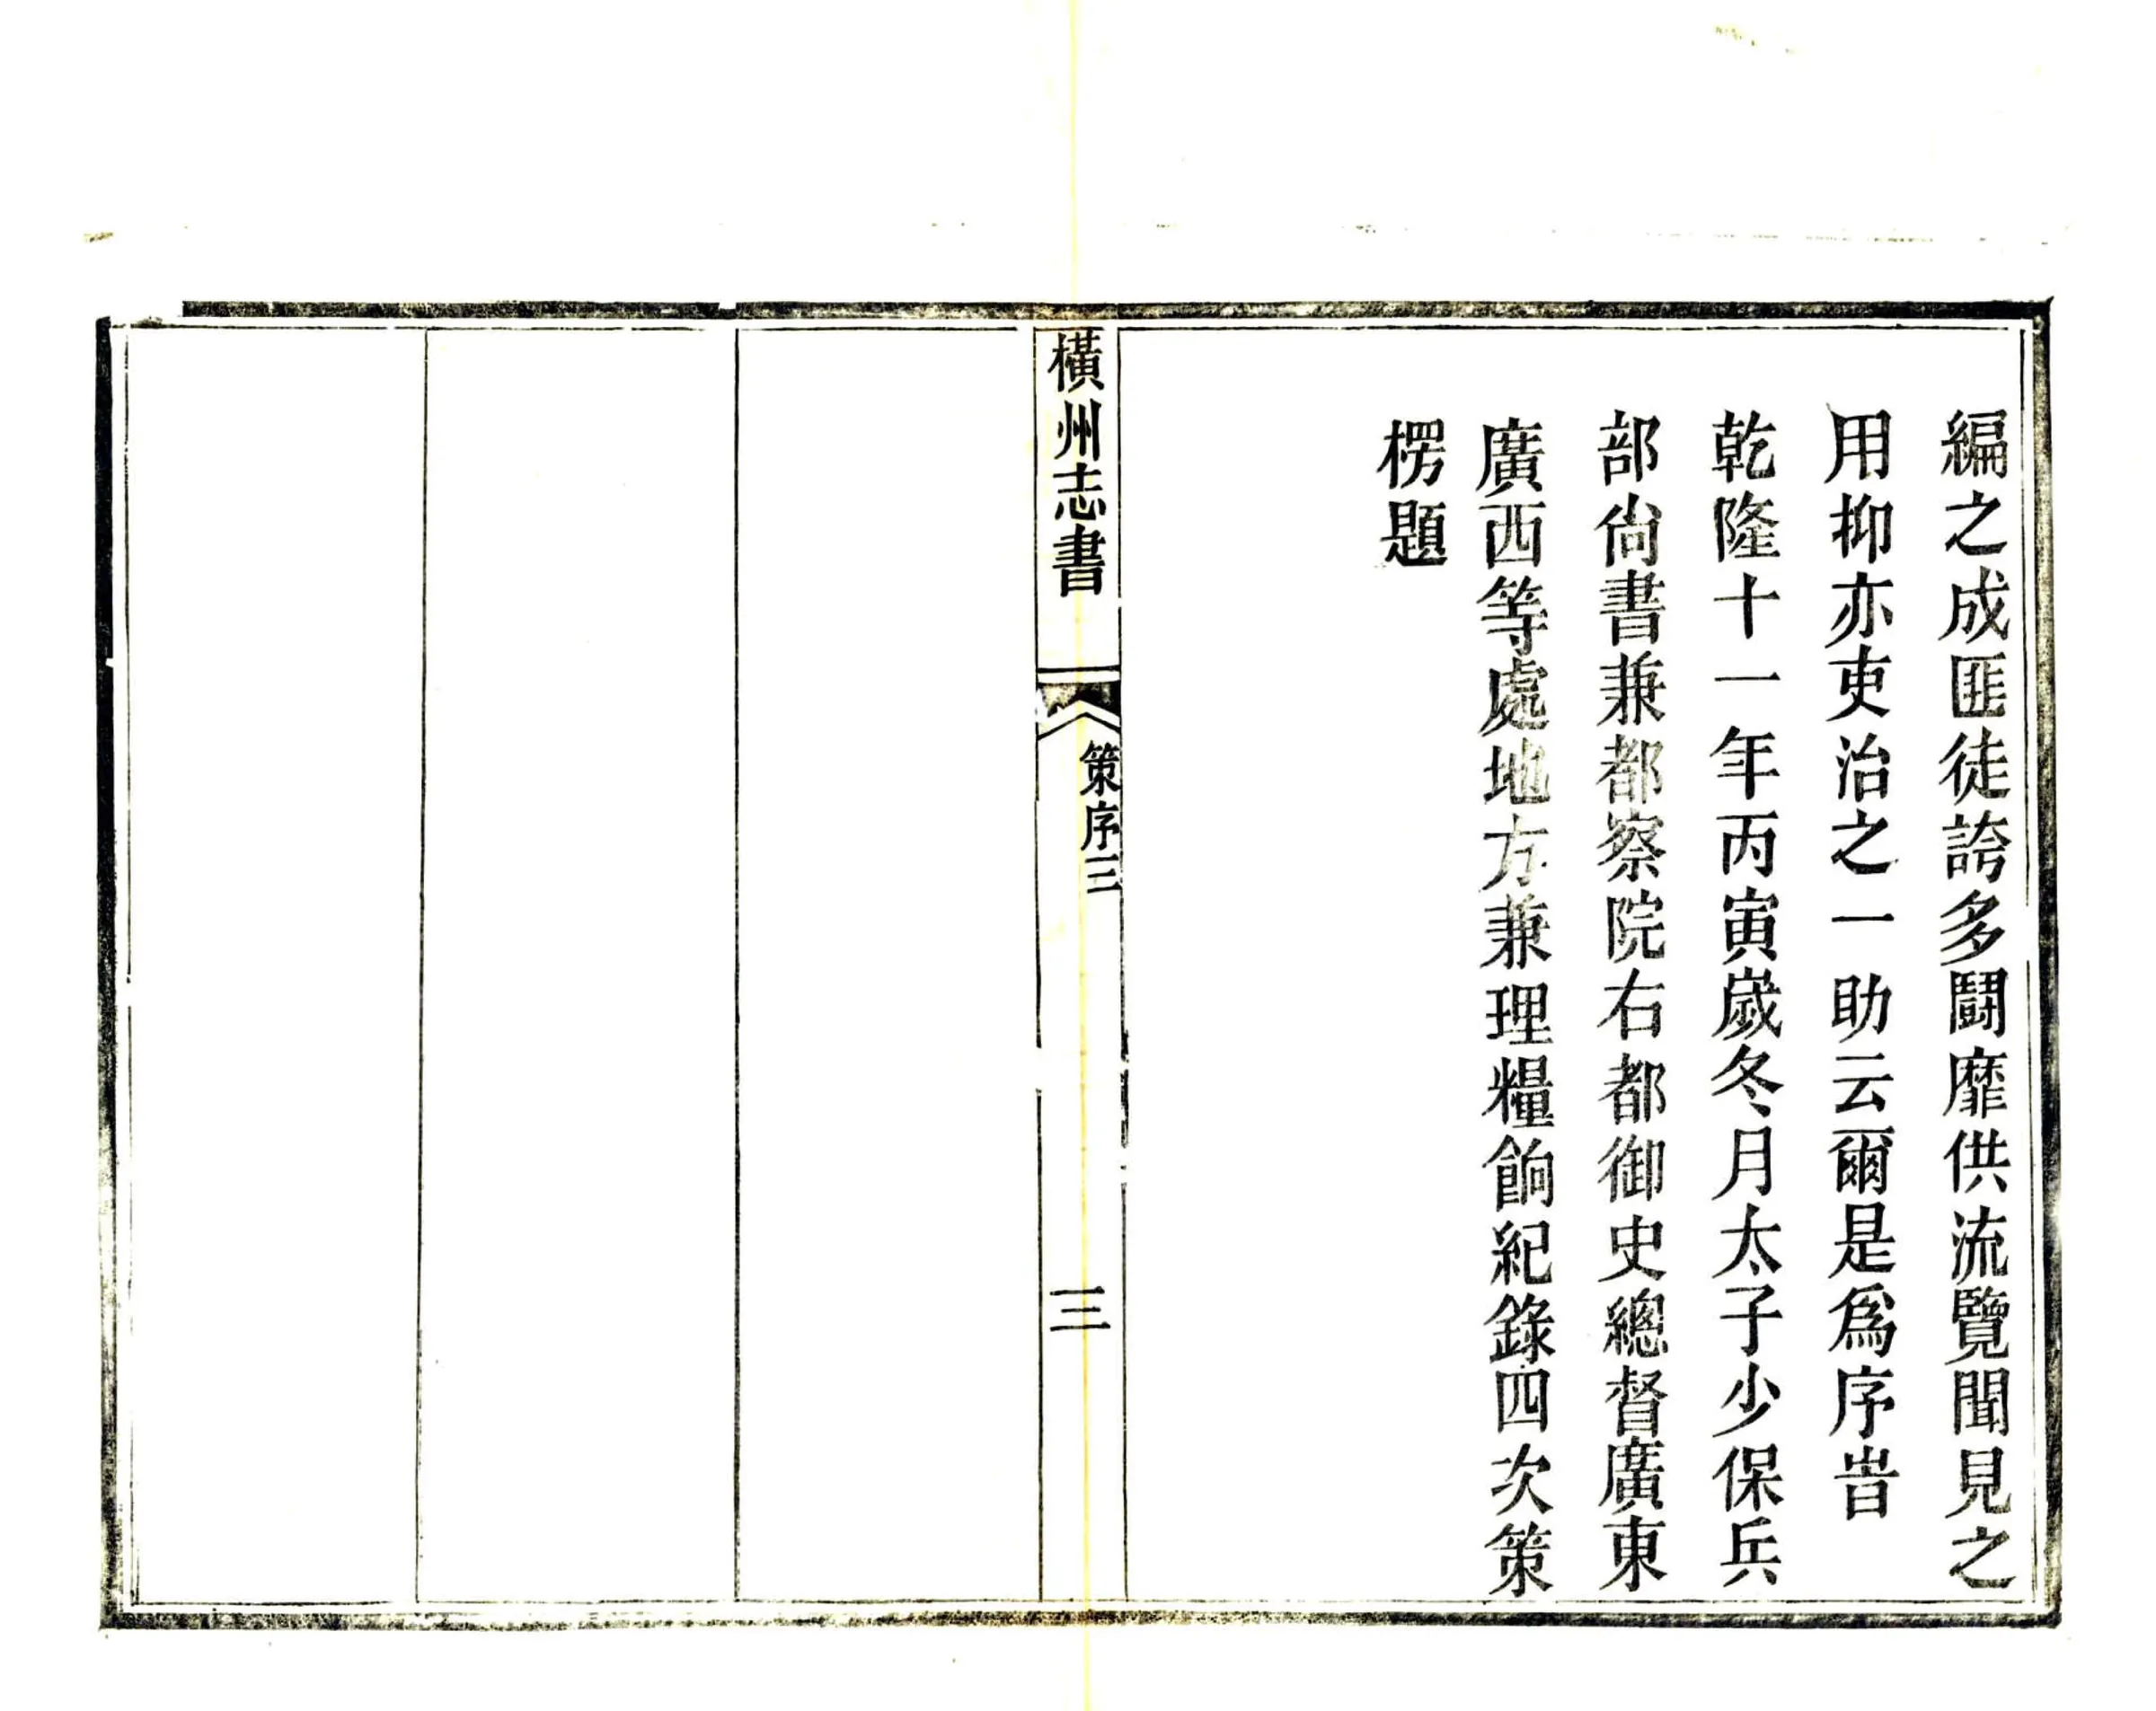 編之成匪徒誇多鬪靡供流覽聞見之
用抑亦吏治之一助云爾是爲序旹
乾隆十一年丙寅歲冬月太子少保兵
部尙書兼都察院右都御史總督廣東
廣西等處地方兼理糧餉紀錄四次策
楞題
橫州志書
策序三
三